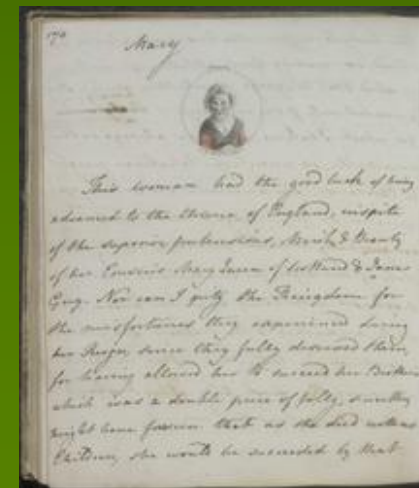 Mary
This woman had the good luck of being
advanced to the throne of England, inspite
of the superior pretensions, Merit & Beauty
of her Cousins Mary Queen of Scotland & Jane
Grey. Nor can I pity the Kingdom for
the misfortunes they experienced during
her Reign, since they fully deserved them,
for having allowed her to succeed her Brother
which was a double peice of folly, since they
might have foreseen that as she died without
Children, she would be succeeded by that